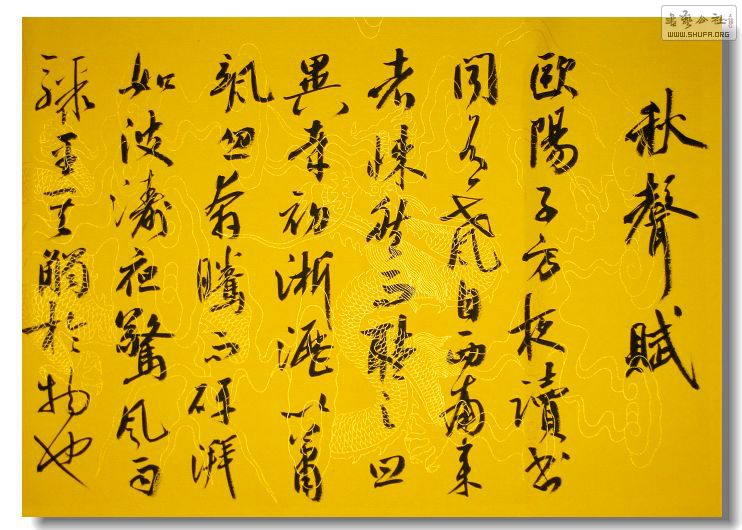 秋聲賦
歐陽子方夜讀書
聞有声自西南来
者悚然而聽之曰
異哉初淅瀝以蕭
颯忽奔騰而砰湃
如波濤夜驚風雨
驟至其觸於物也
书艺公社
WWW.SHUFA.ORG